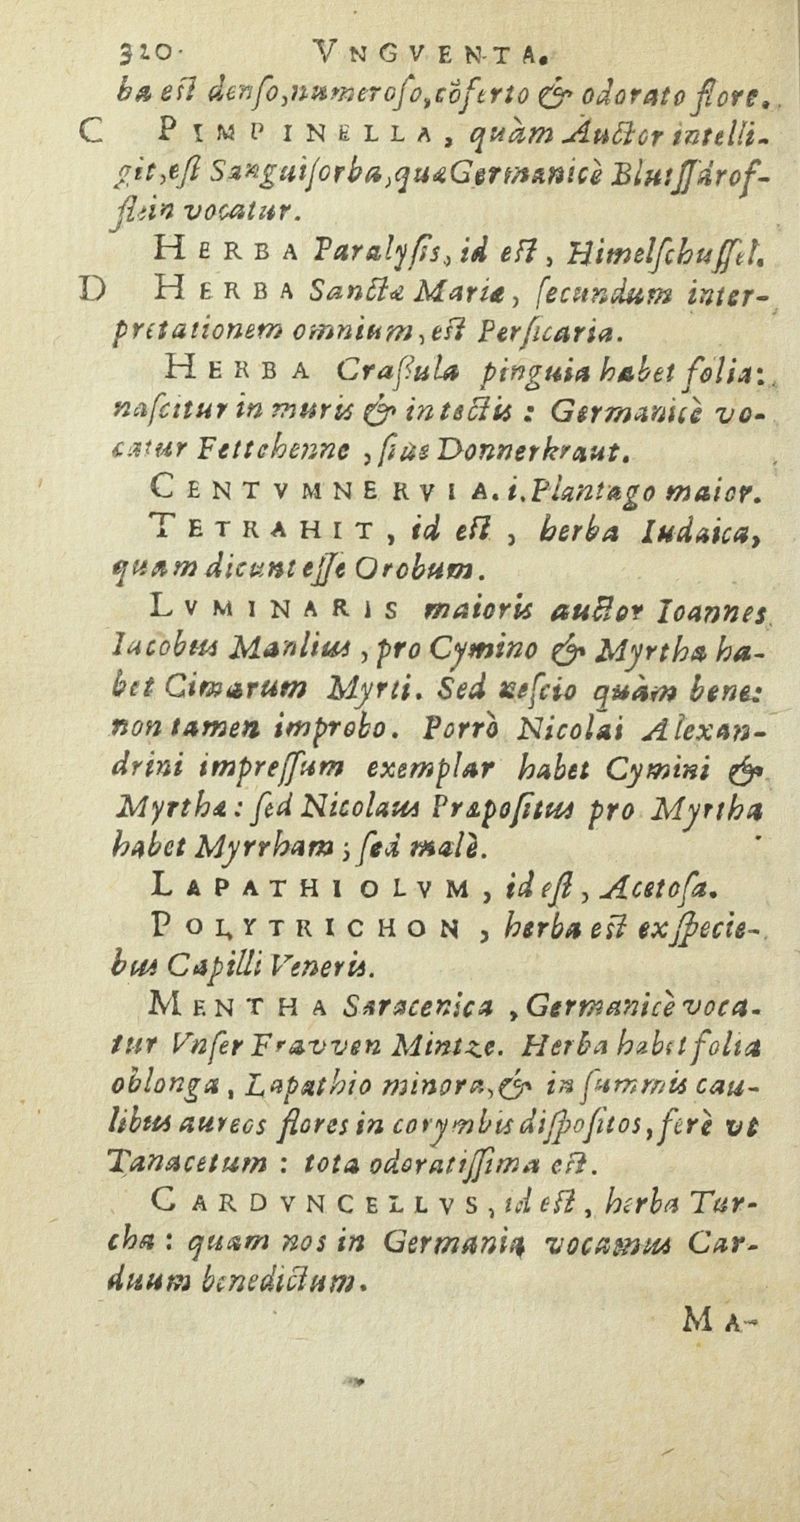 320. VNGVENTA.
ba est denso, numeroso, cōferto & odorato flore.
C PIMPINELLA, quàm Auctor intelli-
git, est Sanguisorba, quæ Germanicè Blutssdrof-
flein vocatur.
HERBA Paralysis, id est, Himelschussel.
D HERBA Sanctæ Mariæ, secundum inter-
pretationem omnium, est Persicaria.
HERBA Crassula pinguia habet folia:
nascitur in muris & in tectis : Germanicè vo-
catur Fettchenne, siue Donnerkraut.
CENTVMNERVIA. i. Plantago maior.
TETRAHIT, id est, herba Iudaica,
quam dicunt esse Orobum.
LVMINARIS maioris auctor Ioannes
Iacobus Manlius, pro Cymino & Myrtha ha-
bet Cimarum Myrti. Sed nescio quàm bene:
non tamen improbo. Porrò Nicolai Alexan-
drini impressum exemplar habet Cymini &
Myrthæ : sed Nicolaus Præpositus pro Myrtha
habet Myrrham ; sed malè.
LAPATHIOLVM, id est, Acetosa.
POLYTRICHON, herba est ex specie-
bus Capilli Veneris.
MENTHA Saracenica, Germanicè voca-
tur Vnser Fravven Mintze. Herba habet folia
oblonga, Lapathio minora, & in summis cau-
libus aureos flores in corymbis dispositos, ferè vt
Tanacetum : tota odoratissima est.
CARDVNCELLVS, id est, herba Tur-
cha : quam nos in Germania vocamus Car-
duum benedictum.
MA-